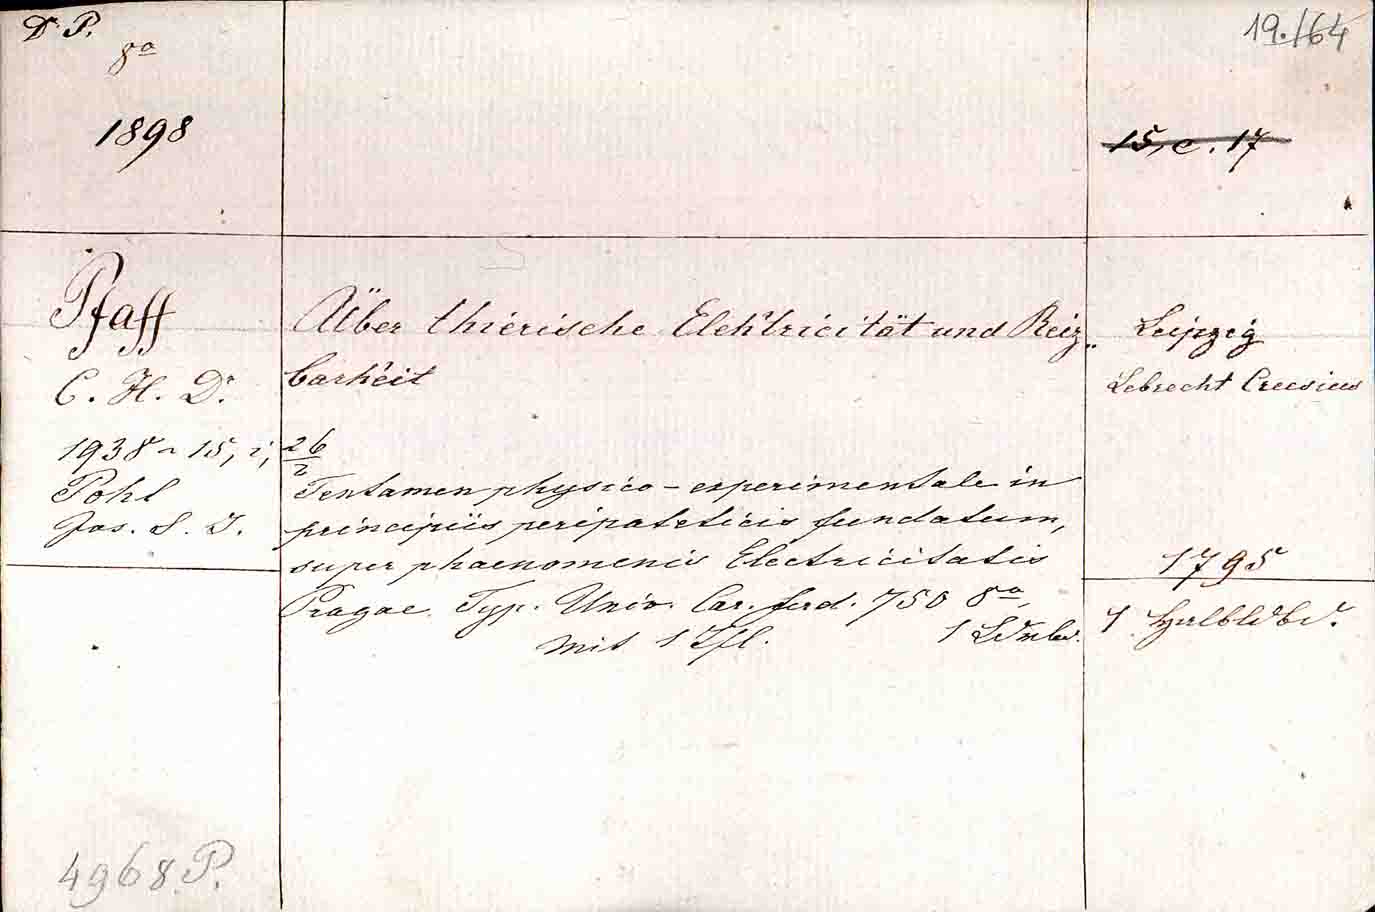 Dr. P.
8º
1898
19./64
15, c. 17
Pfaff
C. H. Dr.
Über thierische Elektricität und Reiz„
barkeit
Leipzig
Lebrecht Crusius
1795
1 Halbldbd.
1938 ~ 15, i, 26/2
Pohl
Jos. S. J.
Tentamen physico-experimentale in
principiis peripateticis fundatum,
super phaenomenis Electricitatis
Pragae. Typ. Univ. Car. ferd. 750 8º,
mit 1 Tfl. 1
4968 P.